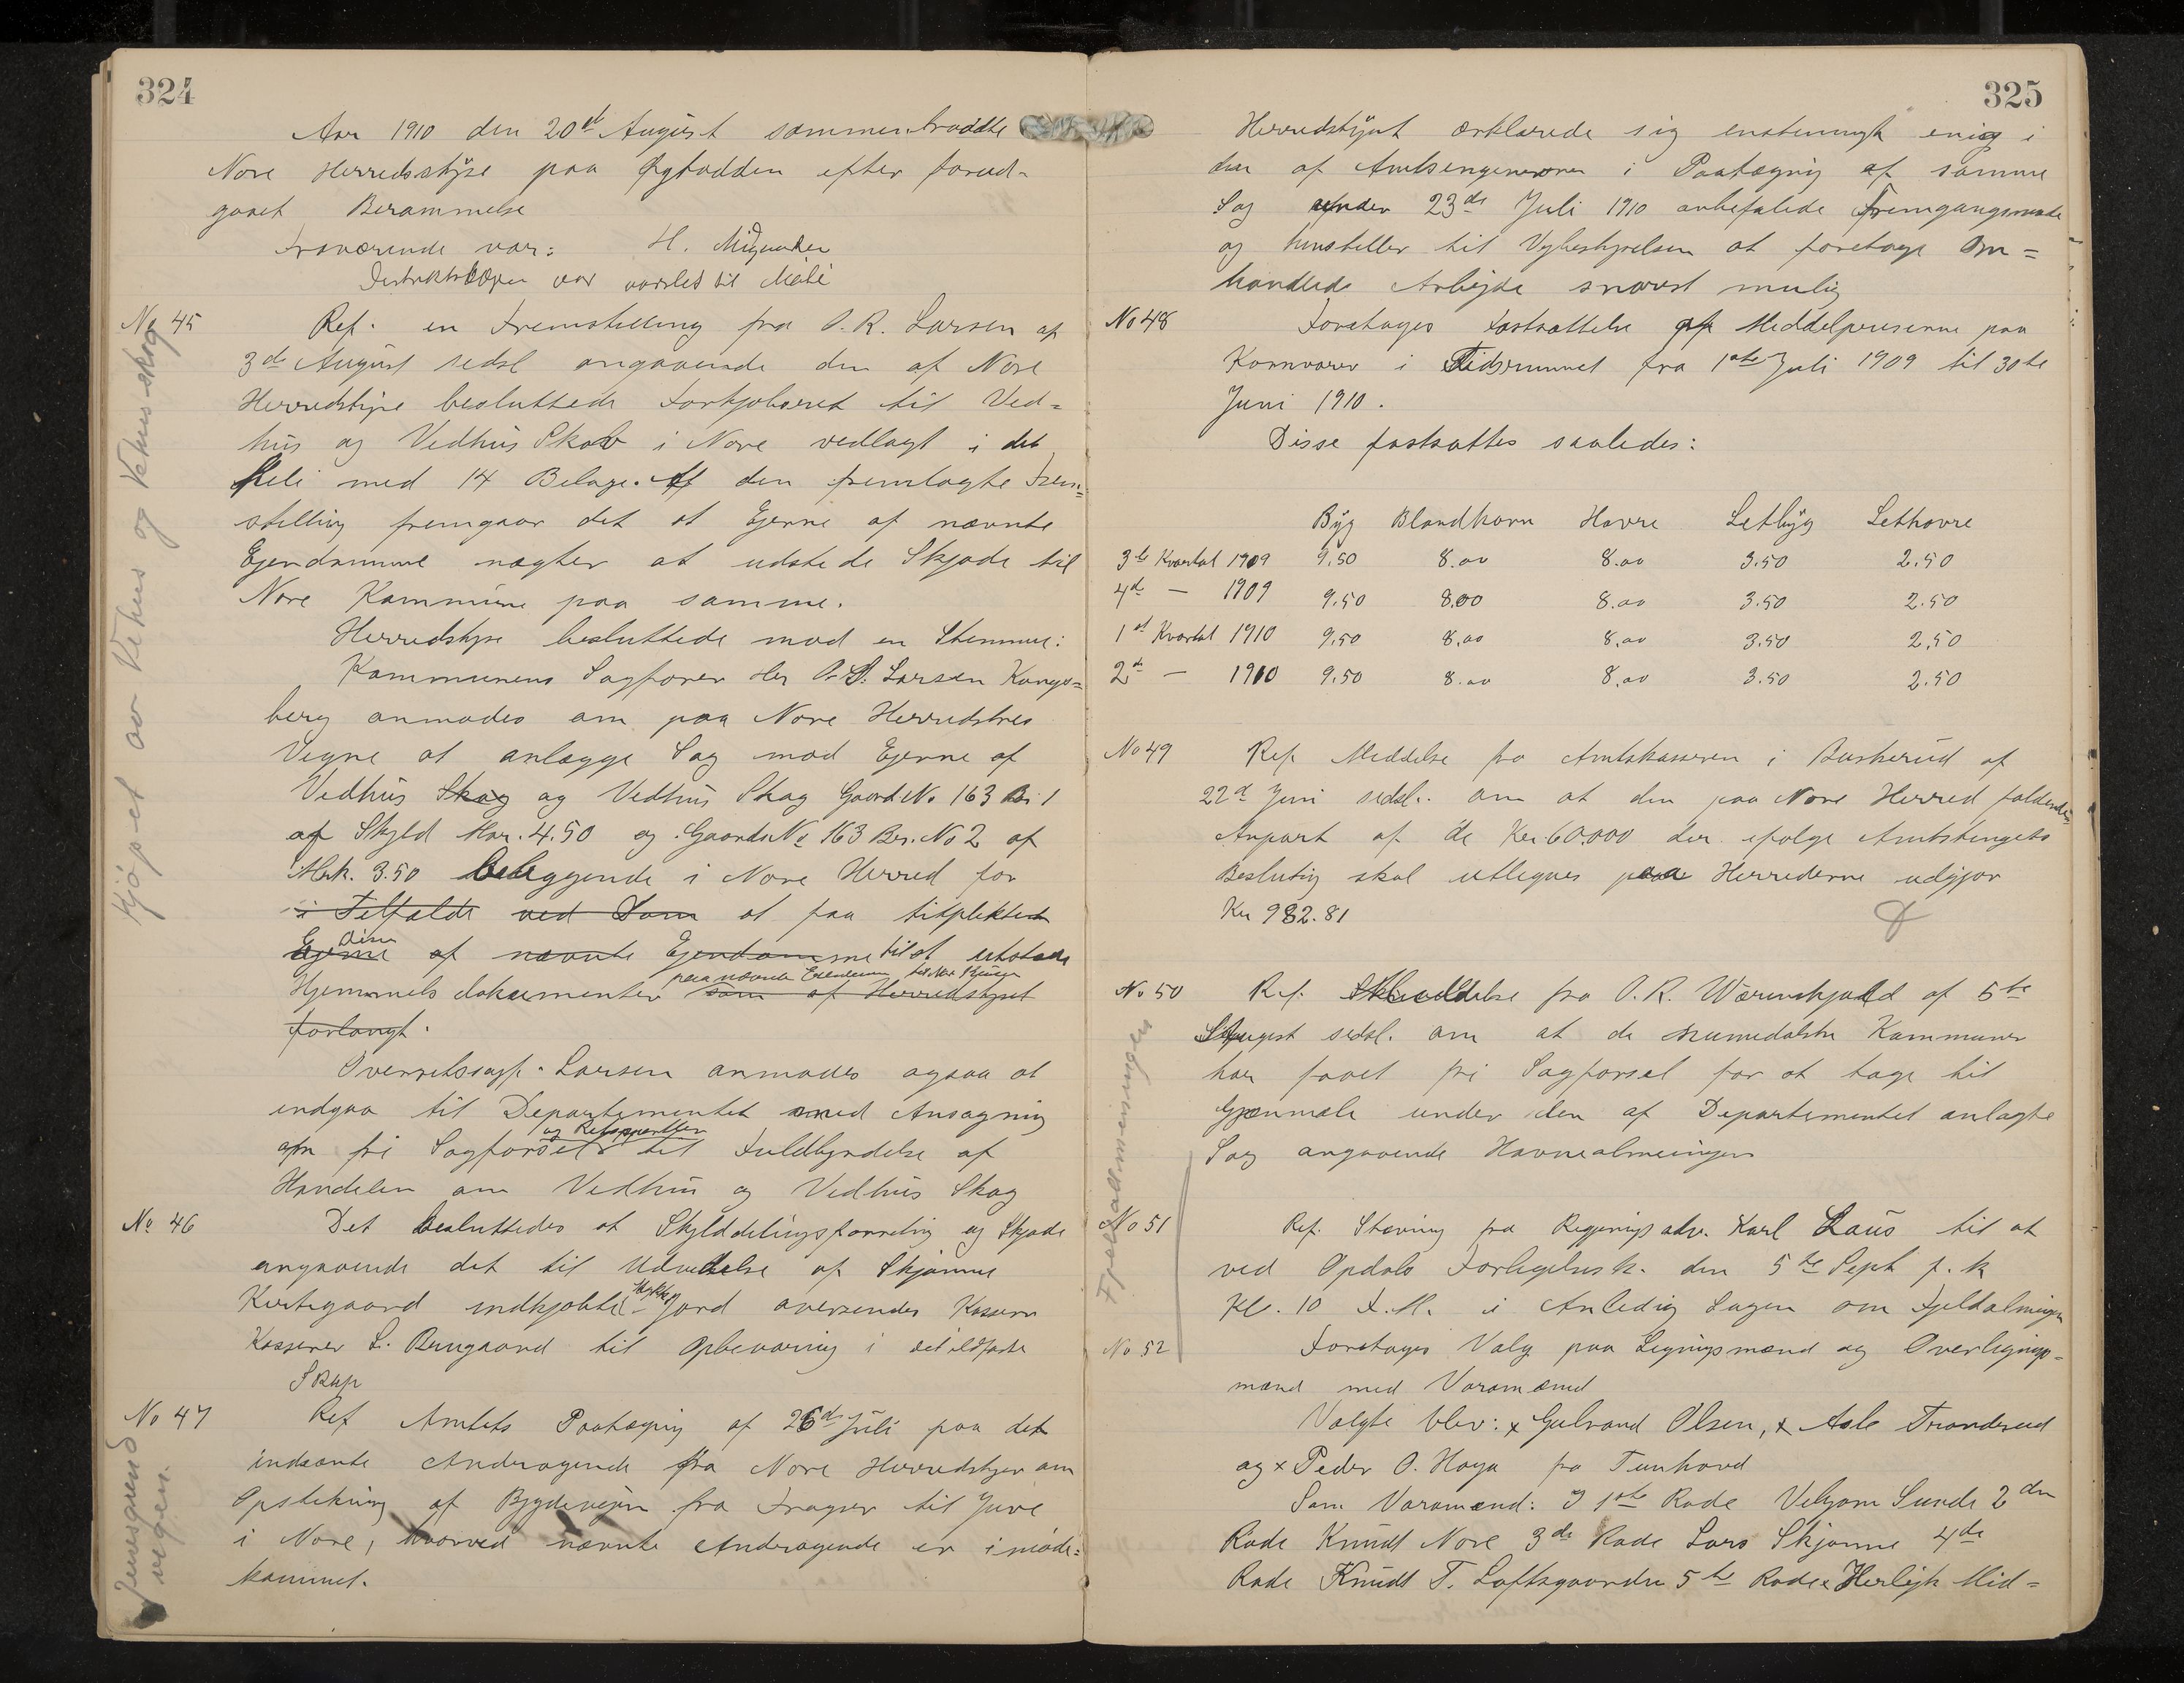 324
Aar 1910 den 20de August sammentraadte
Nore Herredsstyre paa efter forud-
gaaet Berammelse
Fraværende var: H.
var varslet til Møde
No 45 Ref. en Fremstilling fra O. R. Larsen af
3de August sidstl angaaende den af Nore
Herredstyre besluttede Forkjøbsret til Ved-
hus og Vedhus Skov i Nore vedlagt i det
Hele med 14 Belage. Af den fremlagte Frem-
stilling fremgaar det at Ejerne af nævnte
Ejendomme nægter at udstede Skjøde til
Nore Kommune paa samme.
Herredstyre besluttede mod en Stemme:
Kommunens Sagfører Hr O. R. Larsen Kongs-
berg anmodes om paa Nore Herredstyres
Vegne at anlægge Sag mod Ejerne af
Vedhus Skog og Vedhus Skog Gaards No 163 Br. 1
af Skyld Mar. 4.50 og Gaards No 163 Br. No 2 af
Mrk. 3.50 beliggende i Nore Herred for
i Tilfælde ved Dom at faa tilpligted
Ejerne Disse af nævnte Ejendomme til at udstede
Hjemmels dokumenter paa nævnte Ejendomme som af Herredstyret
forlangt.
Overretssagf. Larsen anmodes ogsaa at
indgaa til Departementet med Ansøgning
om fri Sagførsel til Fuldbyrdelse af
Handelen om Vedhus og Vedhus Skog
No 46 Det besluttedes at Skylddelingsforretning og Skjøde
angaaende det til Udvidelse af Skjønne
Kirkegaard indkjøbte Stykke Jord oversendes Kassern
Kasserer L. Brugaard til Opbevaring i det ildfaste
Skap
No 47 Ref Amtets Paategning af 26de Juli paa det
indsente Andragende fra Nore Herredstyre om
Opstikning af Bygdeveien fra til Juve
i Nore, hvorved nævnte Andragende er imøde-
kommet.
Kjøpet av Vehus og Vehus skog
vegen.
325
Herredstyret erklærede sig enstemmigt enig i
den af Amtsingeniøren i Paategning af samme
Sag under 23de Juli 1910 anbefalede Fremgangsmaade
og henstiller til Veibestyrelsen at foretage Om-
handlede Arbejde snarest mulig
No 48 Foretages Fastsættelse af Middelpriserne paa
Kornvarer i Tidsrummet fra 1ste Juli 1909 til 30te
Juni 1910.
Disse fastsattes saaledes:
Byg Blandkorn Havre Letbyg Lethavre
3de Kvartal 1909 9.50 8.00 8.00 3.50 2.50
4de — 1909 9.50 8.00 8.00 3.50 2.50
1ste Kvartal 1910 9.50 8.00 8.00 3.50 2.50
2de — 1910 9.50 8.00 8.00 3.50 2.50
No 49 Ref. Meddelse fra Amtskassereren i Buskerud af
22de Juni sidstl. om at den paa Nore Herred faldende
Anpart af de Kr. 60.000 der ifølge Amtstingets
Beslutnig skal utlignes paa Herrederne udgjør
Kr 982.81
No 50 Ref. Meddelelse fra O. R. Wærenskjold af 5te
August sidstl. om at de numedalske Kommuner
har faaet fri Sagførsel for at tage til
Gjenmæle under den af Departementet anlagte
Sag angaaende Havnealmeninger
No 51 Ref. Stævning fra Regjeringsadv. Karl Laus til at
ved Opdals Forligelsesk. den 5te Sept f. k
Kl. 10 F. M. i Anledig Sagen om Fjeldalmingen
No 52 Foretages Valg paa Ligningsmænd og Overlignings-
mænd med Varamænd
Valgte blev: x Gulrand Olsen, x Asle Tronderud
og x Peder O. Haga fra Tunhovd
Som Varamænd: I 1ste Rade Vebjørn Sunde 2den
Rade Knudt Nore 3de Rade Lars Skjønne 4de
Rade Knudt T. Loftsgaarden 5te Rade x Herlejk Mid-
Fjellalmenningen